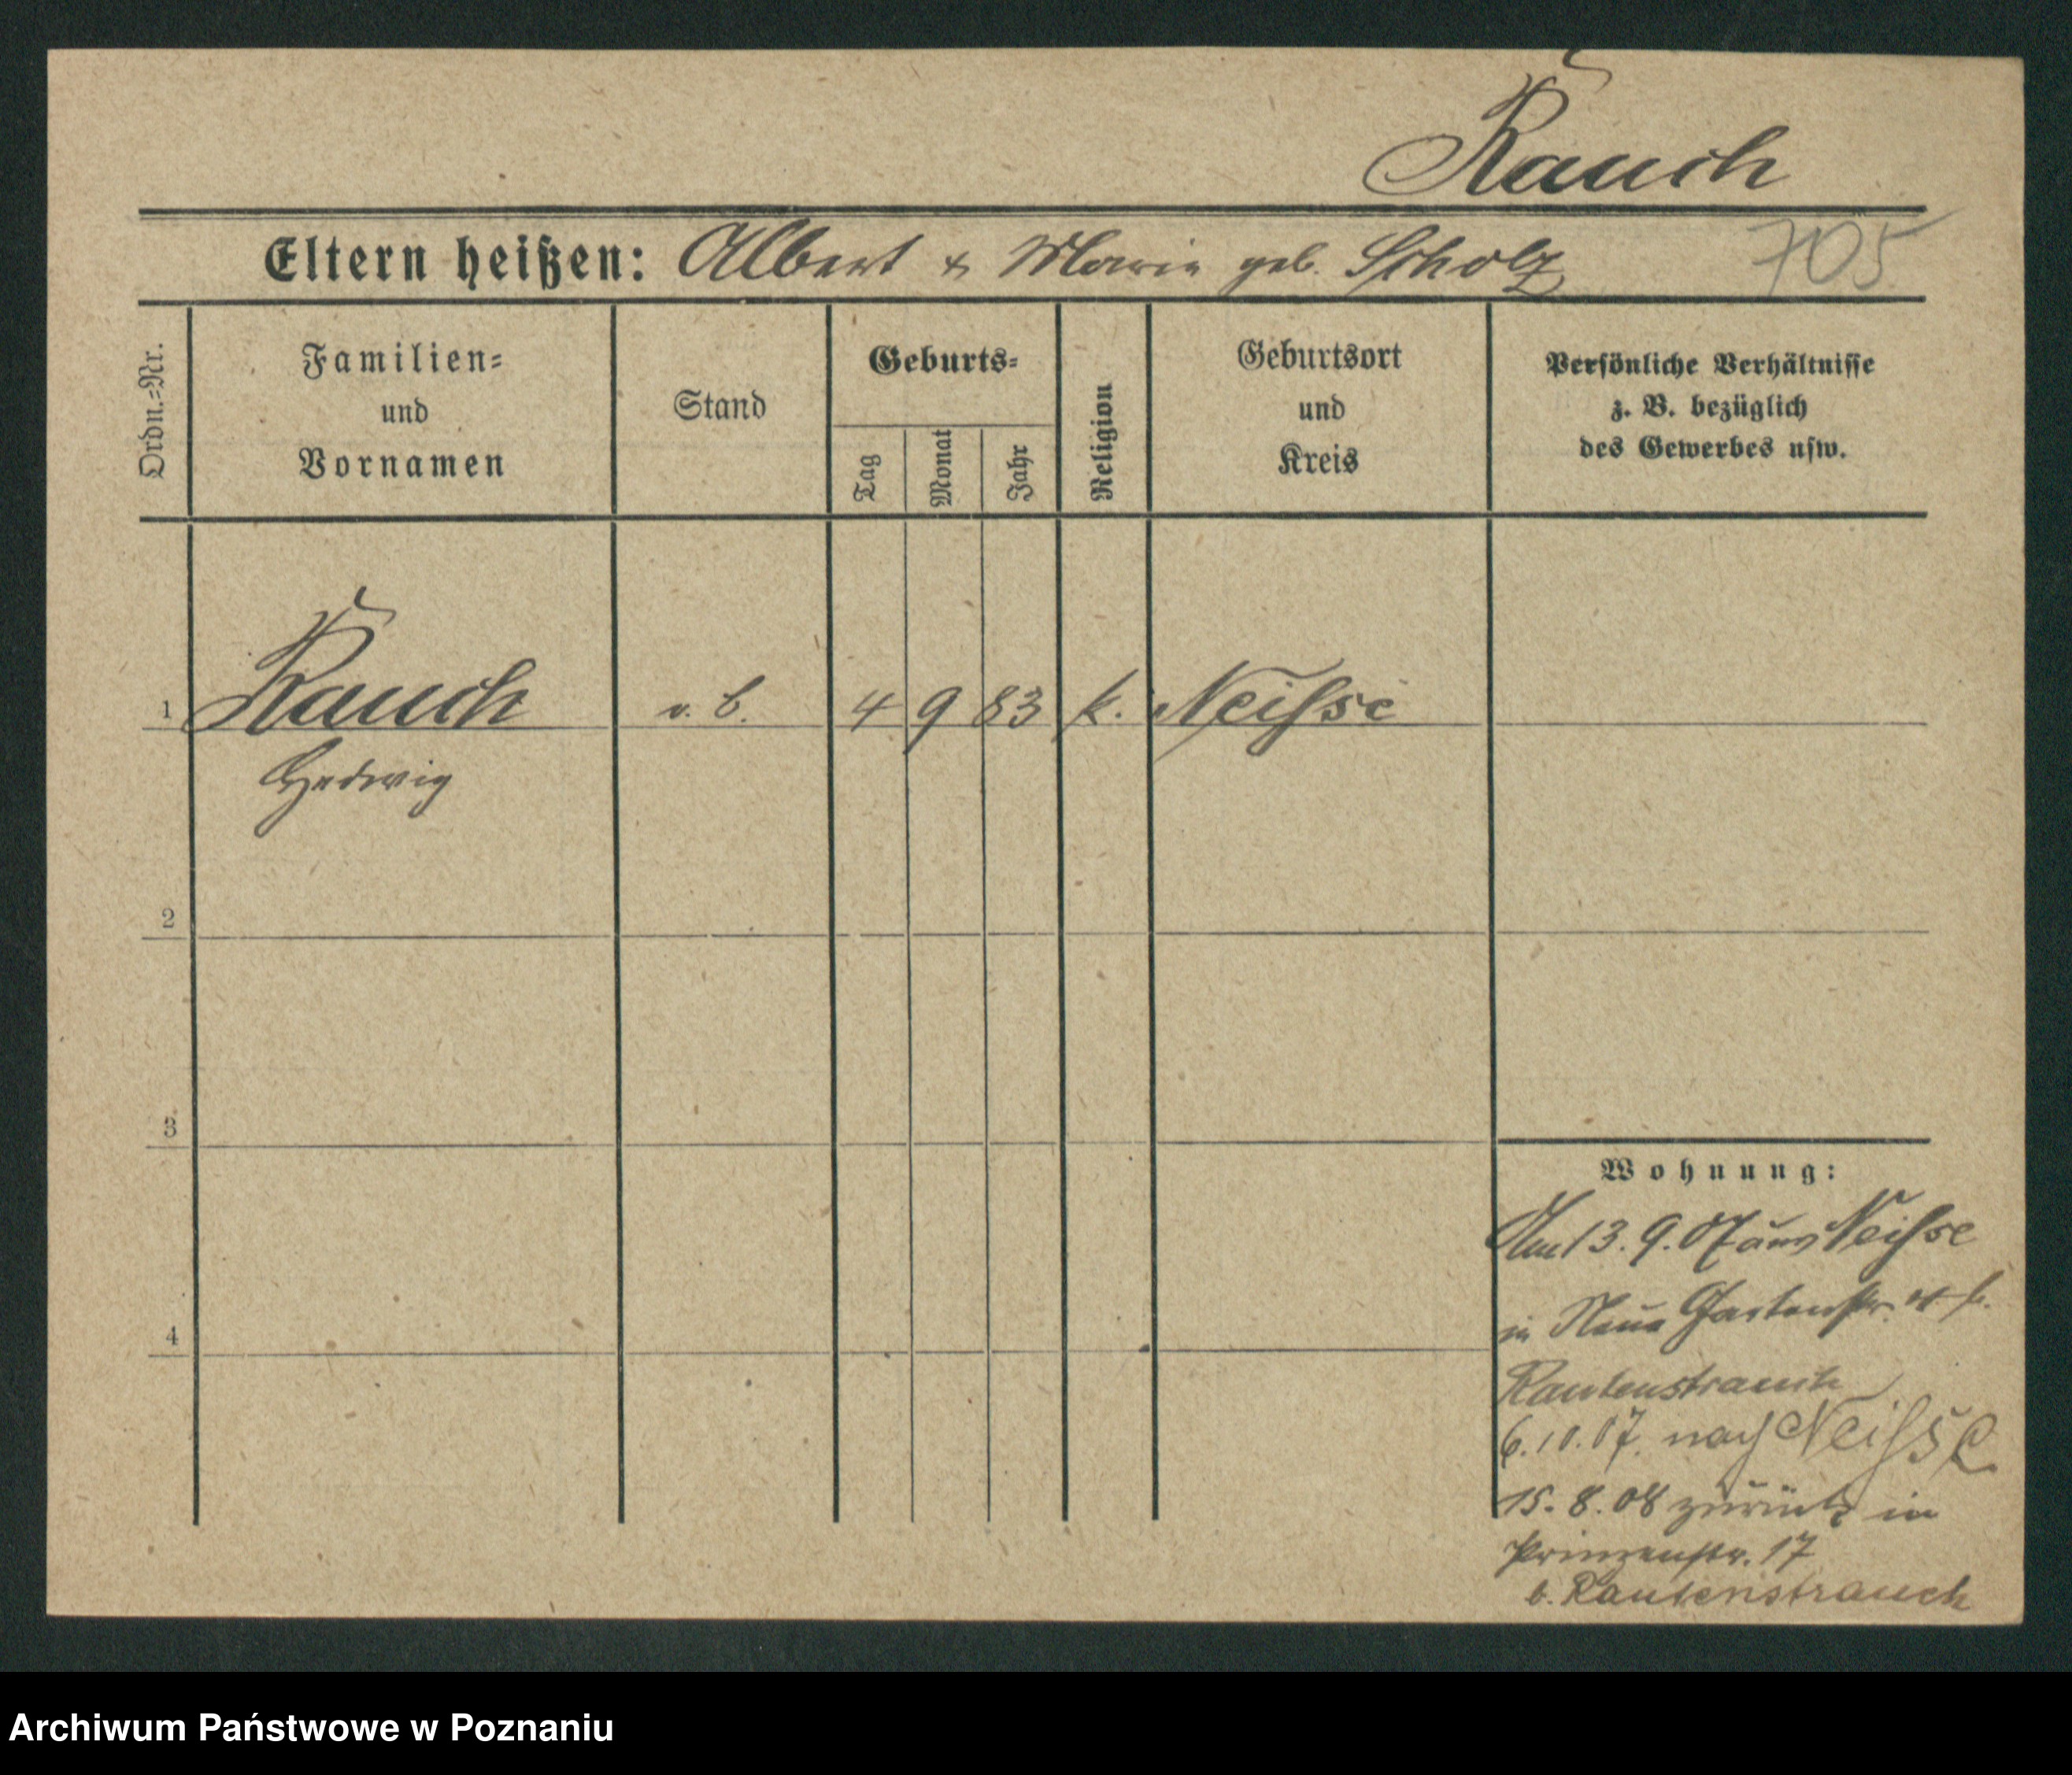 Rauch
Eltern heißen: Albert & Marie geb. Scholz 705
Ordn.=Nr.
Familien=
und
Vornamen
Stand
Geburts=
Tag
Monat
Jahr
Religion
Geburtsort
und
Kreis
Persönliche Verhältnisse
z. B. bezüglich
des Gewerbes usw.
1 Rauch v. b. 4 9 83 k. Neisse
Hedwig
2
3
4
Wohnung:
Am 13. 9. 07 aus Neisse
in Neue Gartenstr.
Rautenstrauch
6. 10. 07. nach Neisse
15. 8. 08 zurück in
Prinzenstr. 17
b. Rautenstrauch
Archiwum Państwowe w Poznaniu